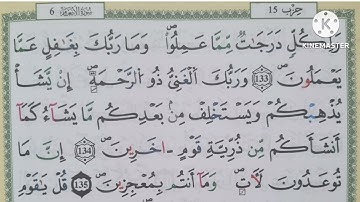 حِزْب 15
سُورَةُ الأَنْعَامِ 6
KINEMASTER
وَلِكُلٍّ دَرَجَٰتٌ مِّمَّا عَمِلُواْ وَمَا رَبُّكَ بِغَٰفِلٍ عَمَّا
يَعْمَلُونَ 133 وَرَبُّكَ ٱلْغَنِيُّ ذُو ٱلرَّحْمَةِ إِنْ يَّشَأْ
يُذْهِبْكُمْ وَيَسْتَخْلِفْ مِنۢ بَعْدِكُم مَّا يَشَآءُ كَمَآ
أَنشَأَكُم مِّن ذُرِّيَّةِ قَوْمٍ ـاخَرِينَ 134 إِنَّ مَا
تُوعَدُونَ لَأٓتٍ وَمَآ أَنتُم بِمُعْجِزِينَ 135 قُلْ يَٰقَوْمِ